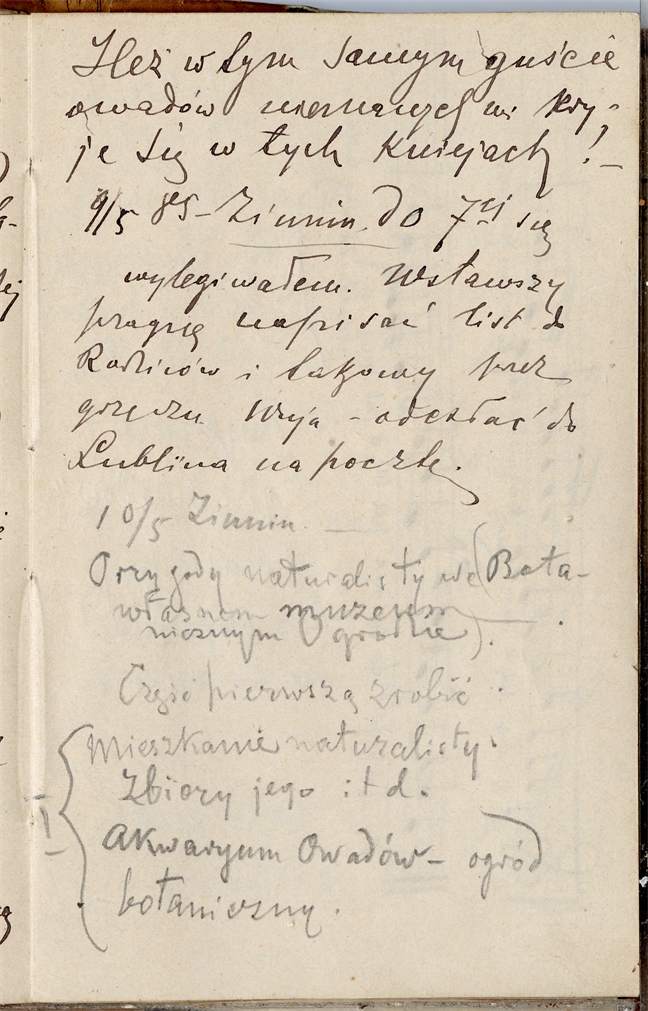 Ileż w tym samym guście
owadów nieznanych mi kry-
je się w tych kniejach! –
9/5 85 – Zimnin. Do 7ej się
wylegiwałem. Wstawszy
pragnę napisać list do
Rodziców i takowy przez
grzeczn. Wuja – odesłać do
Lublina na pocztę.
10/5 Zimnin. –
Przygody naturalisty we (Bota-
własnem muzeum –
nicznym Ogrodzie).
Część pierwszą zrobić.
Mieszkanie naturalisty.
Zbiory jego itd.
I
Akwaryum Owadów – ogród
botaniczny.